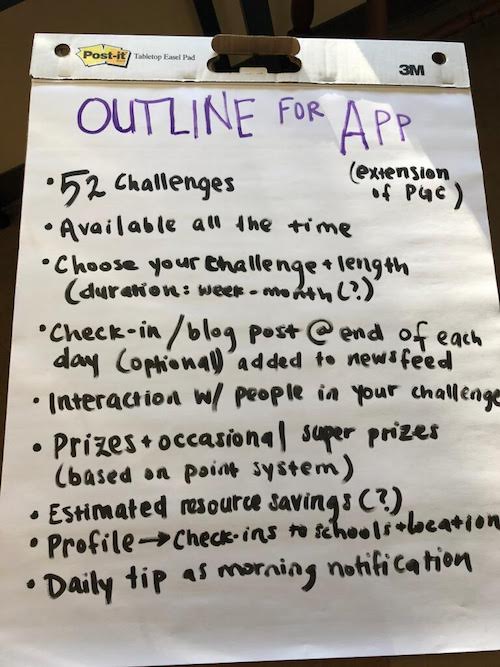 Post-it Tabletop Easel Pad
3M
OUTLINE FOR APP
(extension
of PGC)
• 52 Challenges
• Available all the time
• Choose your challenge + length
(duration: week - month (?)
• Check-in / blog post @ end of each
day (optional) added to newsfeed
• Interaction w/ people in your challenge
• Prizes + occasional super prizes
(based on point system)
• Estimated resource savings (?)
• Profile → Check-ins to schools + location
• Daily tip as morning notification